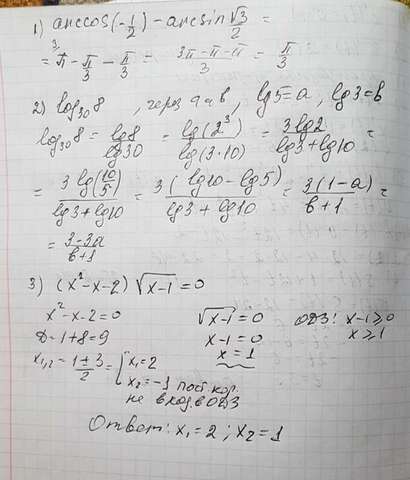 1) arccos(-1/2) - arcsin √3/2 =
= π³ - π/3 - π/3 = (3π-π-π)/3 = π/3
2) log₃₀8 , через a и b , lg5=a , lg3=b
log₃₀8 = lg8/lg30 = lg(2³)/lg(3·10) = 3lg2/(lg3+lg10) =
= 3lg(10/5)/(lg3+lg10) = 3(lg10-lg5)/(lg3+lg10) = 3(1-a)/(b+1) =
= (3-3a)/(b+1)
3) (x²-x-2)√(x-1) = 0
x²-x-2=0
D=1+8=9
x₁,₂ = (1±3)/2 = [x₁=2
x₂=-1 пост кор.
не вход. в ОДЗ
√(x-1) = 0
x-1=0
x=1
ОДЗ: x-1≥0
x≥1
Ответ: x₁=2 ; x₂=1